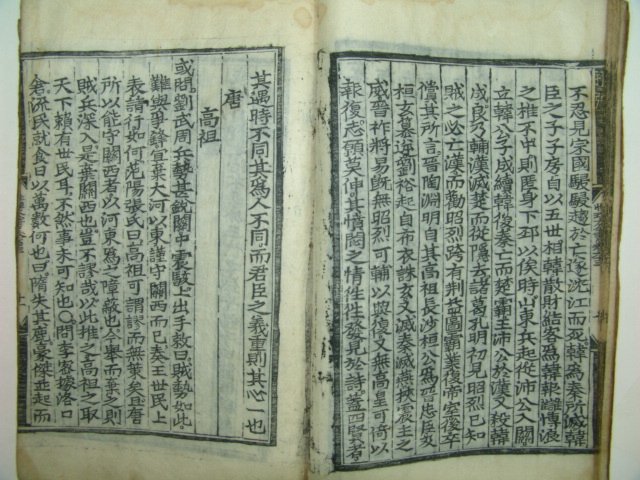 不忍見宗國駸駸趨於亡遂沈江而死韓為秦所滅韓
臣之子子房自以五世相韓散財結客為韓報讎博浪
之推不中則匿身下邳以俟時山東兵起從沛公入關
立韓公子成續韓後秦亡而楚霸王沛公於漢又殺韓
成良乃輔漢滅楚而從隱去諸葛孔明初見昭烈已知
賊之必亡漢而勸昭烈跨有荆益圖霸業復帝室後卒
償其所言晉陶淵明自其高祖長沙桓公為晉忠臣及
桓玄篡逆劉裕起自布衣誅玄又滅秦滅燕挾震主之
威晉祚將易旣無昭烈可輔以興復又無高皇可倚以
報復志願莫伸其憤悶之情往往發見於詩蓋四賢者
其遇時不同其為人不同而君臣之義重則其心一也
唐
高祖
或問劉武周兵勢甚銳關中震駭上出手敕曰賊勢如此
難與爭鋒宜棄大河以東謹守關西而已秦王世民上
表請行如何先陽張氏曰高祖可謂謬而無策矣且唐
所以能守關西者以河東為之障蔽也今舉而棄之則
賊兵深入是棄關西也豈不謬哉以此推之高祖之取
天下賴有世民耳不然事未可知也○問李密據洛口
倉流民就食日以萬數何也曰隋失其鹿豪傑並起而